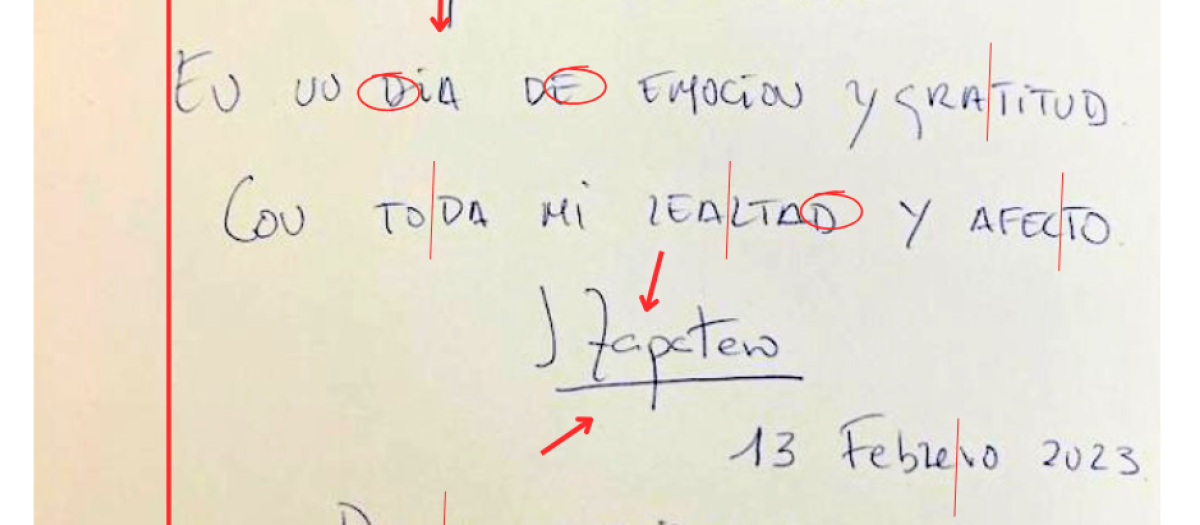 En un DiA DE EMOCiON y GRATiTUD.
Con TODA Mi lEALTAD Y AFECTO.
J Zapatero
13 Febrero 2023